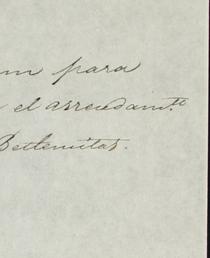 para
el arrendam.to
Betlemitas.